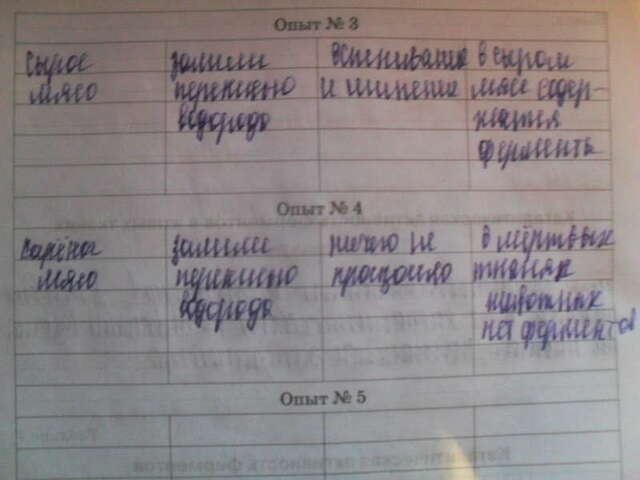 Опыт № 3
сырое залили вспенивание в сыром
мясо перекисью и шипение мясе содер-
водорода жатся
ферменты
Опыт № 4
варёное залили ничего не в мёртвых
мясо перекисью произошло тканях
водорода животных
нет ферментов
Опыт № 5